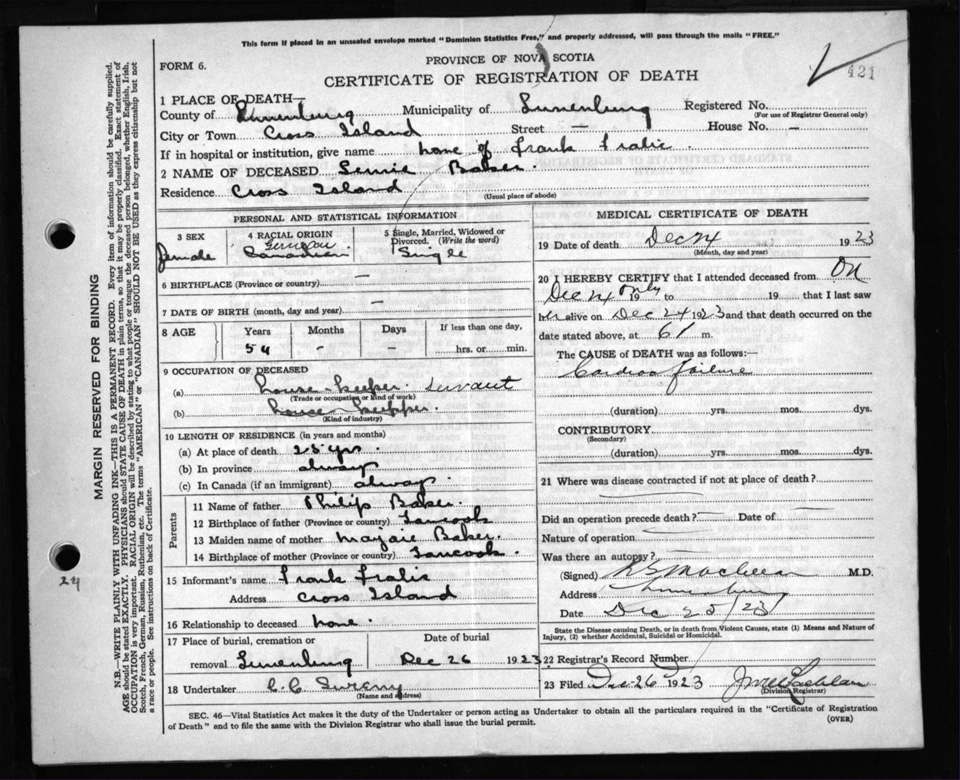 This form if placed in an unsealed envelope marked "Dominion Statistics Free," and properly addressed, will pass through the mails "FREE."
PROVINCE OF NOVA SCOTIA
FORM 6.
CERTIFICATE OF REGISTRATION OF DEATH
421
1 PLACE OF DEATH—
County of Lunenburg Municipality of Lunenburg Registered No.
(For use of Registrar General only)
City or Town Cross Island Street — House No. —
If in hospital or institution, give name home of Frank Fralic
2 NAME OF DECEASED Baker
Residence Cross Island
(Usual place of abode)
PERSONAL AND STATISTICAL INFORMATION
3 SEX female
4 RACIAL ORIGIN German Canadian
5 Single, Married, Widowed or Divorced. (Write the word) Single
6 BIRTHPLACE (Province or country) —
7 DATE OF BIRTH (month, day and year) —
8 AGE Years Months Days If less than one day,
54 - - hrs. or min.
9 OCCUPATION OF DECEASED
(a) house-keeper. servant
(Trade or occupation or kind of work)
(b) house keeper.
(Kind of industry)
10 LENGTH OF RESIDENCE (in years and months)
(a) At place of death 25 yrs.
(b) In province always
(c) In Canada (if an immigrant) always.
Parents
11 Name of father Philip Baker.
12 Birthplace of father (Province or country) Tancook
13 Maiden name of mother Baker.
14 Birthplace of mother (Province or country) Tancook.
15 Informant's name Frank Fralic
Address Cross Island
16 Relationship to deceased none.
17 Place of burial, cremation or removal Lunenburg
Date of burial Dec 26 1923
18 Undertaker C. C. Sweeny
(Name and address)
MEDICAL CERTIFICATE OF DEATH
19 Date of death Dec 24 1923
(Month, day and year)
20 I HEREBY CERTIFY that I attended deceased from On
Dec 24 only 19 to 19 that I last saw
her alive on Dec 24 1923 and that death occurred on the
date stated above, at m.
The CAUSE of DEATH was as follows:—
Cardiac failure
(duration) yrs. mos. dys.
CONTRIBUTORY
(Secondary)
(duration) yrs. mos. dys.
21 Where was disease contracted if not at place of death?
Did an operation precede death? Date of
Nature of operation
Was there an autopsy?
(Signed) M.D.
Address Lunenburg
Date Dec 25/23
State the Disease causing Death, or in death from Violent Causes, state (1) Means and Nature of
Injury, (2) whether Accidental, Suicidal or Homicidal.
22 Registrar's Record Number
23 Filed Dec 26 1923
(Division Registrar)
SEC. 46—Vital Statistics Act makes it the duty of the Undertaker or person acting as Undertaker to obtain all the particulars required in the "Certificate of Registration
of Death" and to file the same with the Division Registrar who shall issue the burial permit.
(OVER)
MARGIN RESERVED FOR BINDING
N.B.—WRITE PLAINLY WITH UNFADING INK—THIS IS A PERMANENT RECORD. Every item of information should be carefully supplied.
AGE should be stated EXACTLY. PHYSICIANS should STATE CAUSE OF DEATH in plain terms, so that it may be properly classified. Exact statement of
OCCUPATION is very important. RACIAL ORIGIN will be described by stating to what people or tongue the deceased person belonged, whether English, Irish,
Scotch, French, German, Russian, Ruthenian, etc. The terms "AMERICAN" or "CANADIAN" SHOULD NOT BE USED as they express citizenship but not
a race or people. See instructions on back of Certificate.
24